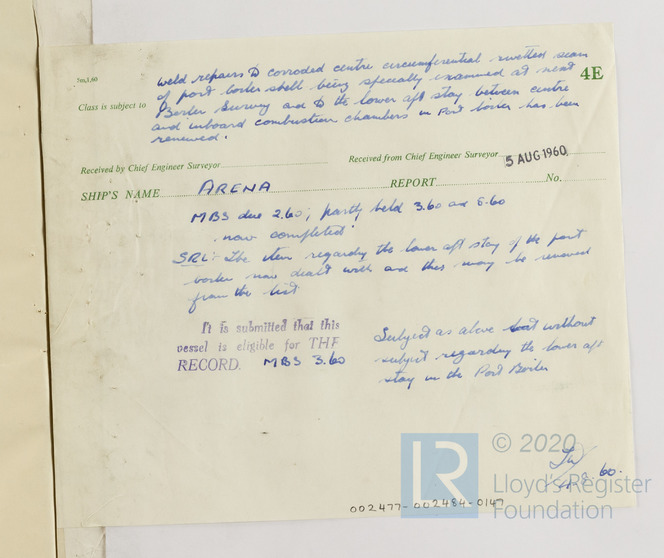 5m,1,60
weld repairs to corroded centre circumferential riveted seam
of port boiler shell being specially examined at next
Class is subject to Boiler Survey and to the lower aft stay between centre
and inboard combustion chambers in Port boiler has been
renewed.
4E
Received by Chief Engineer Surveyor
Received from Chief Engineer Surveyor 5 AUG 1960
SHIP'S NAME ARENA REPORT No.
MBS due 2.60; partly held 3.60 and 5.60
now completed.
SRL:- The item regarding the lower aft stay of the port
boiler now dealt with and this may be removed
from the list
It is submitted that this
vessel is eligible for THE
RECORD. MBS 3.60
Subject as above but without
subject regarding the lower aft
stay in the Port Boiler
8.60.
LR
© 2020
Lloyd's Register
Foundation
002477-002484-0147